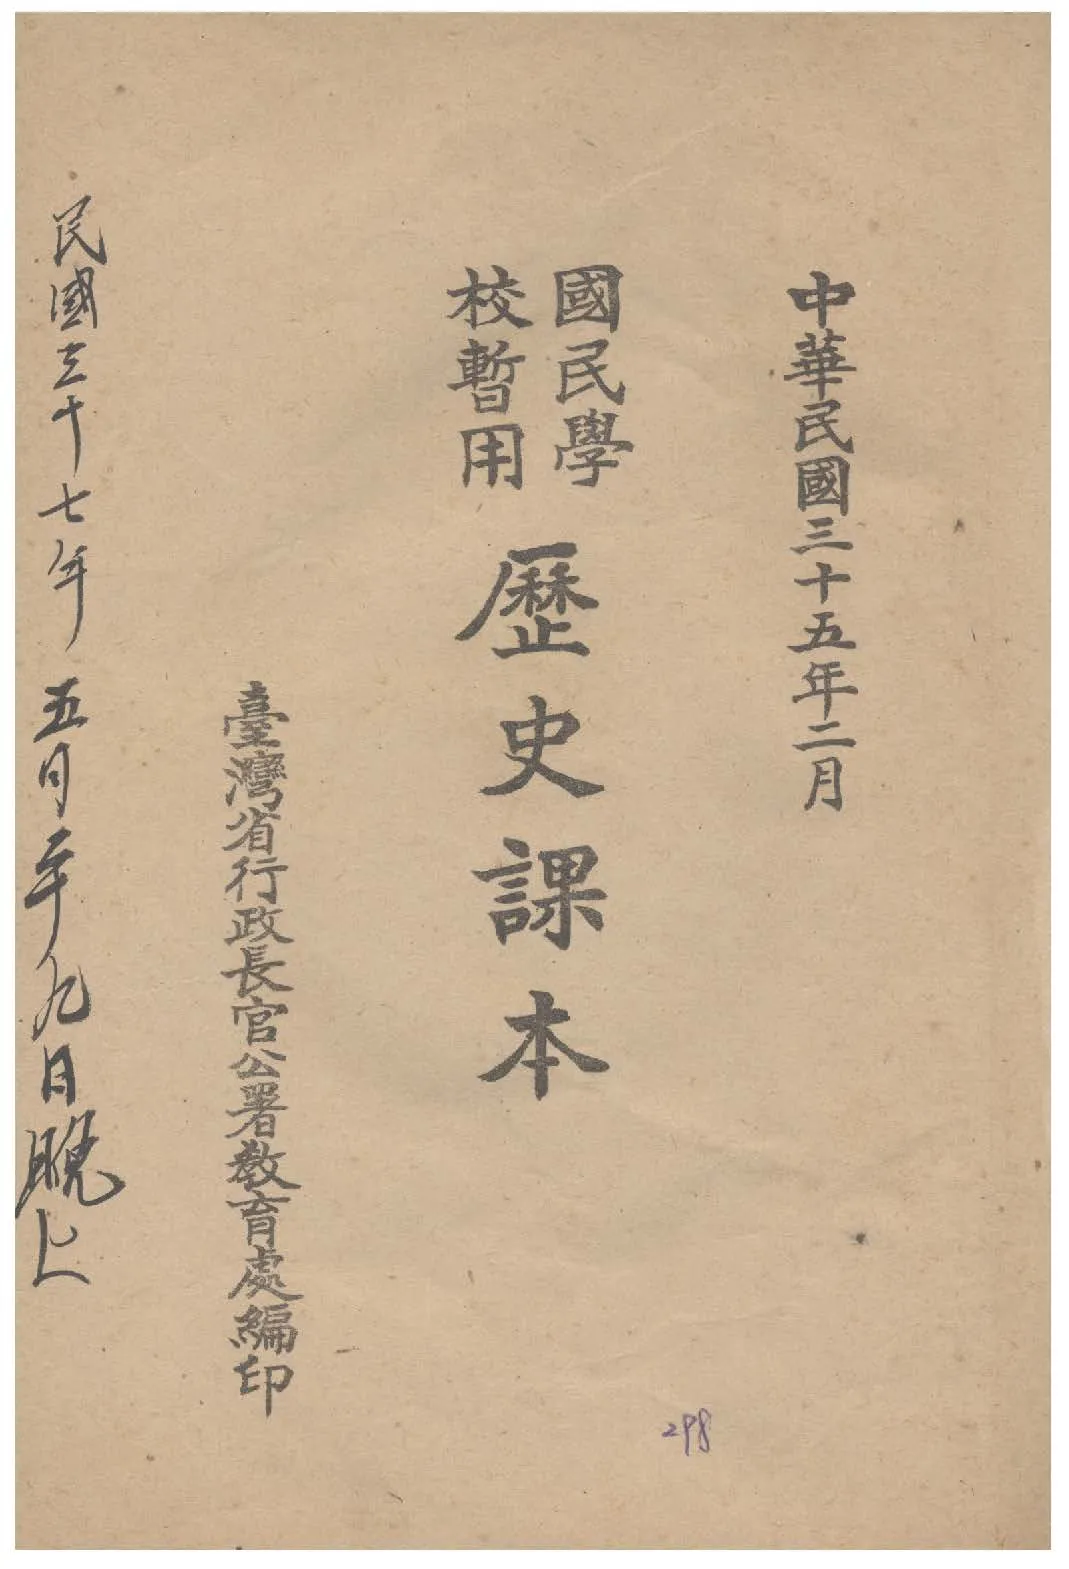 中華民國三十五年二月
國民學
校暫用
歷史課本
臺灣省行政長官公署教育處編印
民國三十七年 五月二十九日晚上
298